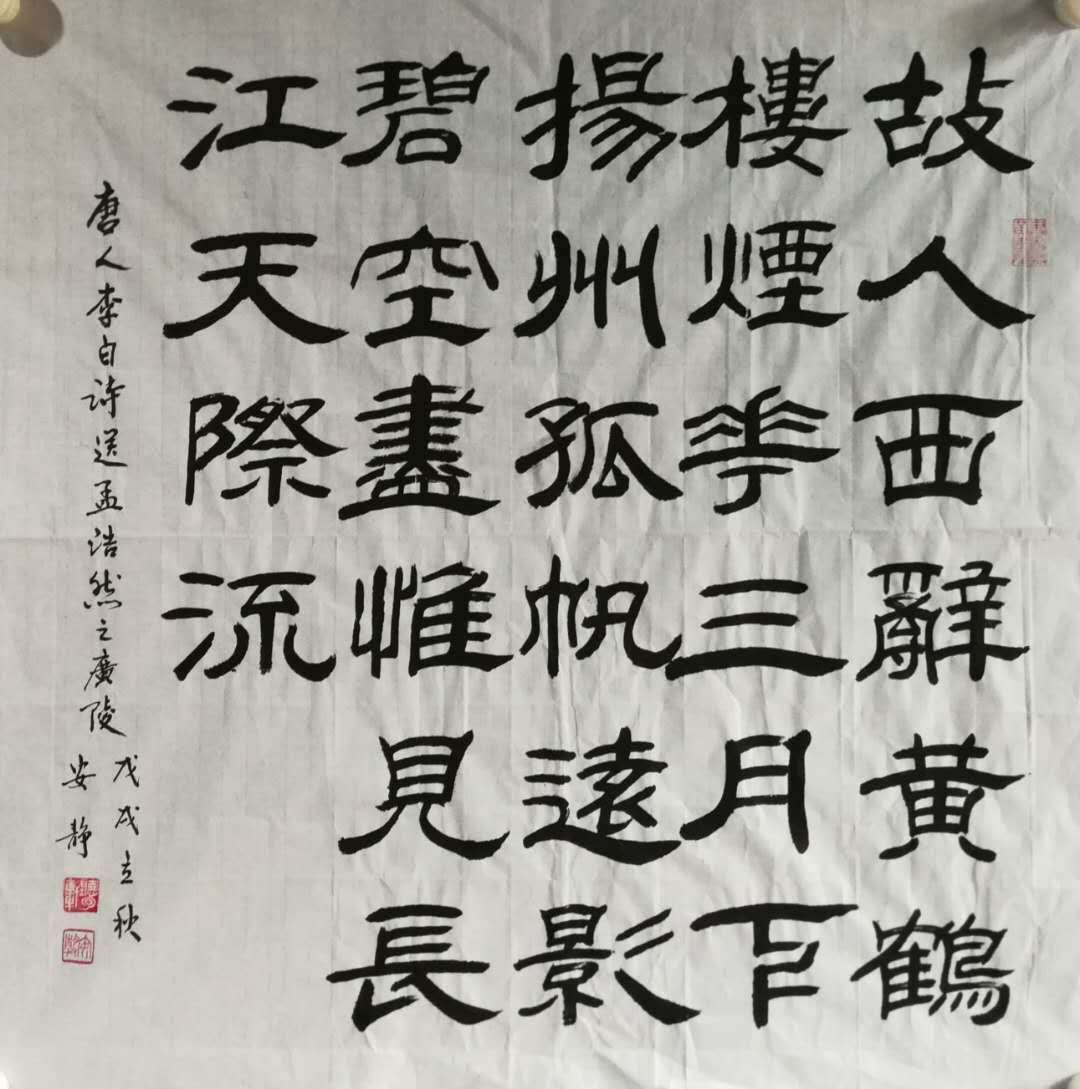 故人西辭黄鶴
樓煙花三月下
揚州孤帆遠影
碧空盡惟見長
江天際流
唐人李白詩送孟浩然之廣陵
戊戌立秋
安靜